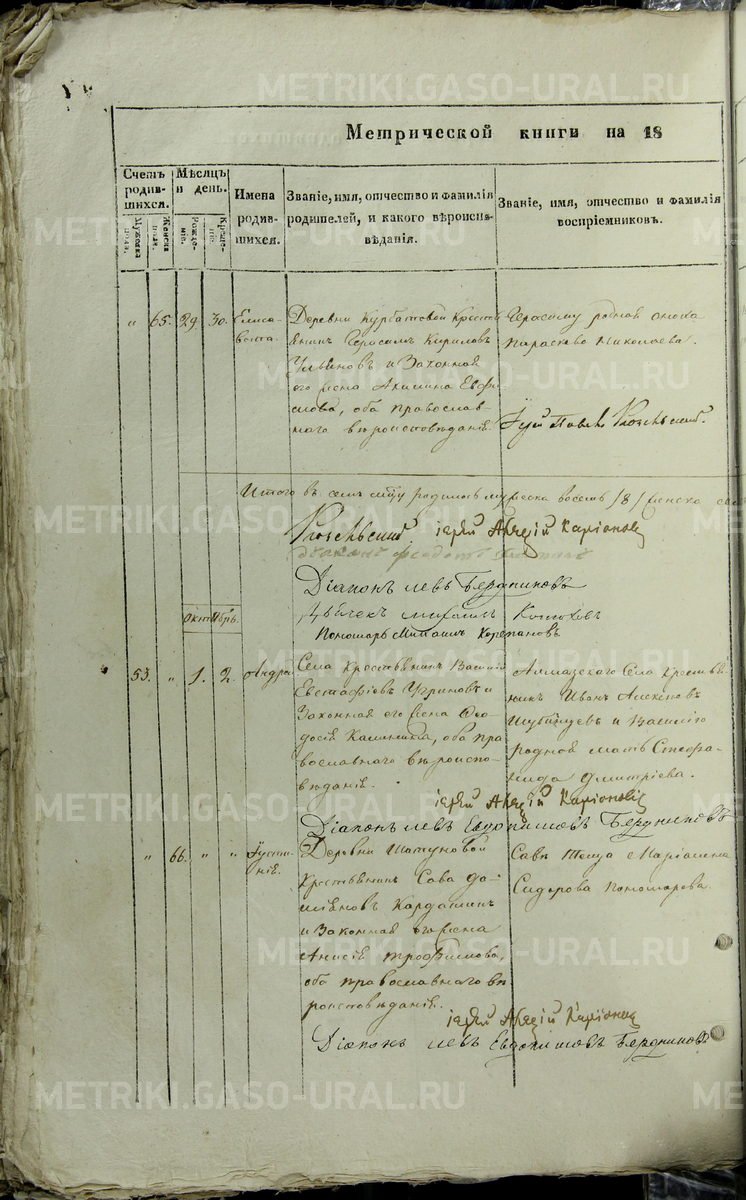 METRIKI.GASO-URAL.RU
Метрической книги на 18
Счетъ родившихся.
Мужеска пола.
Женска пола.
Мѣсяцъ и день.
Рожденія.
Крещенія.
Имена родившихся.
Званіе, имя, отчество и фамилія
родителей, и какого вѣроиспо-
вѣданія.
Званіе, имя, отчество и фамилія
воспріемниковъ.
„ 65. 29. 30. Елиса-
вета.
Деревни Курбатовой Кресть
янинъ Герасимъ Кириловъ
Ульяновъ и Законная
его жена Акилина Евфи-
мова, оба православ-
наго вѣроисповѣданія.
Герасиму родная сноха
Параскева Николаева.
Іерей Павелъ
Итого въ семъ мѣсяцу родилось мужеска восемь /8/ женска
іерей Аркадій Каріоновъ
Діаконъ Ѳедотъ
Діаконъ Левъ Бердниковъ
Дьячекъ Михаилъ
Пономарь Михаилъ Корепановъ
Октябрь.
53. „ 1. 2. Андрей
Села Крестьянинъ Василій
Евстафіевъ Угриновъ и
Законная его жена Ѳео-
досія Калинина, оба пра
вославнаго вѣроиспо-
вѣданія.
Алмазскаго Села Крестья
нинъ Иванъ Алексѣевъ
Шубинцевъ и Василію
родная мать Стефа-
нида Дмитріева.
іерей Аркадій Каріоновъ
Діаконъ Левъ Евдокимовъ Бердниковъ
„ 66. „ „ Іусти-
нія.
Деревни Шатуновой
Крестьянинъ Сава Да-
міановъ Кардашинъ
и Законная его жена
Анисія Трофимова,
оба православнаго вѣ
роисповѣданія.
Савѣ теща Маріамна
Сидорова Пономарева.
іерей Аркадій Каріоновъ
Діаконъ Левъ Евдокимовъ Бердниковъ